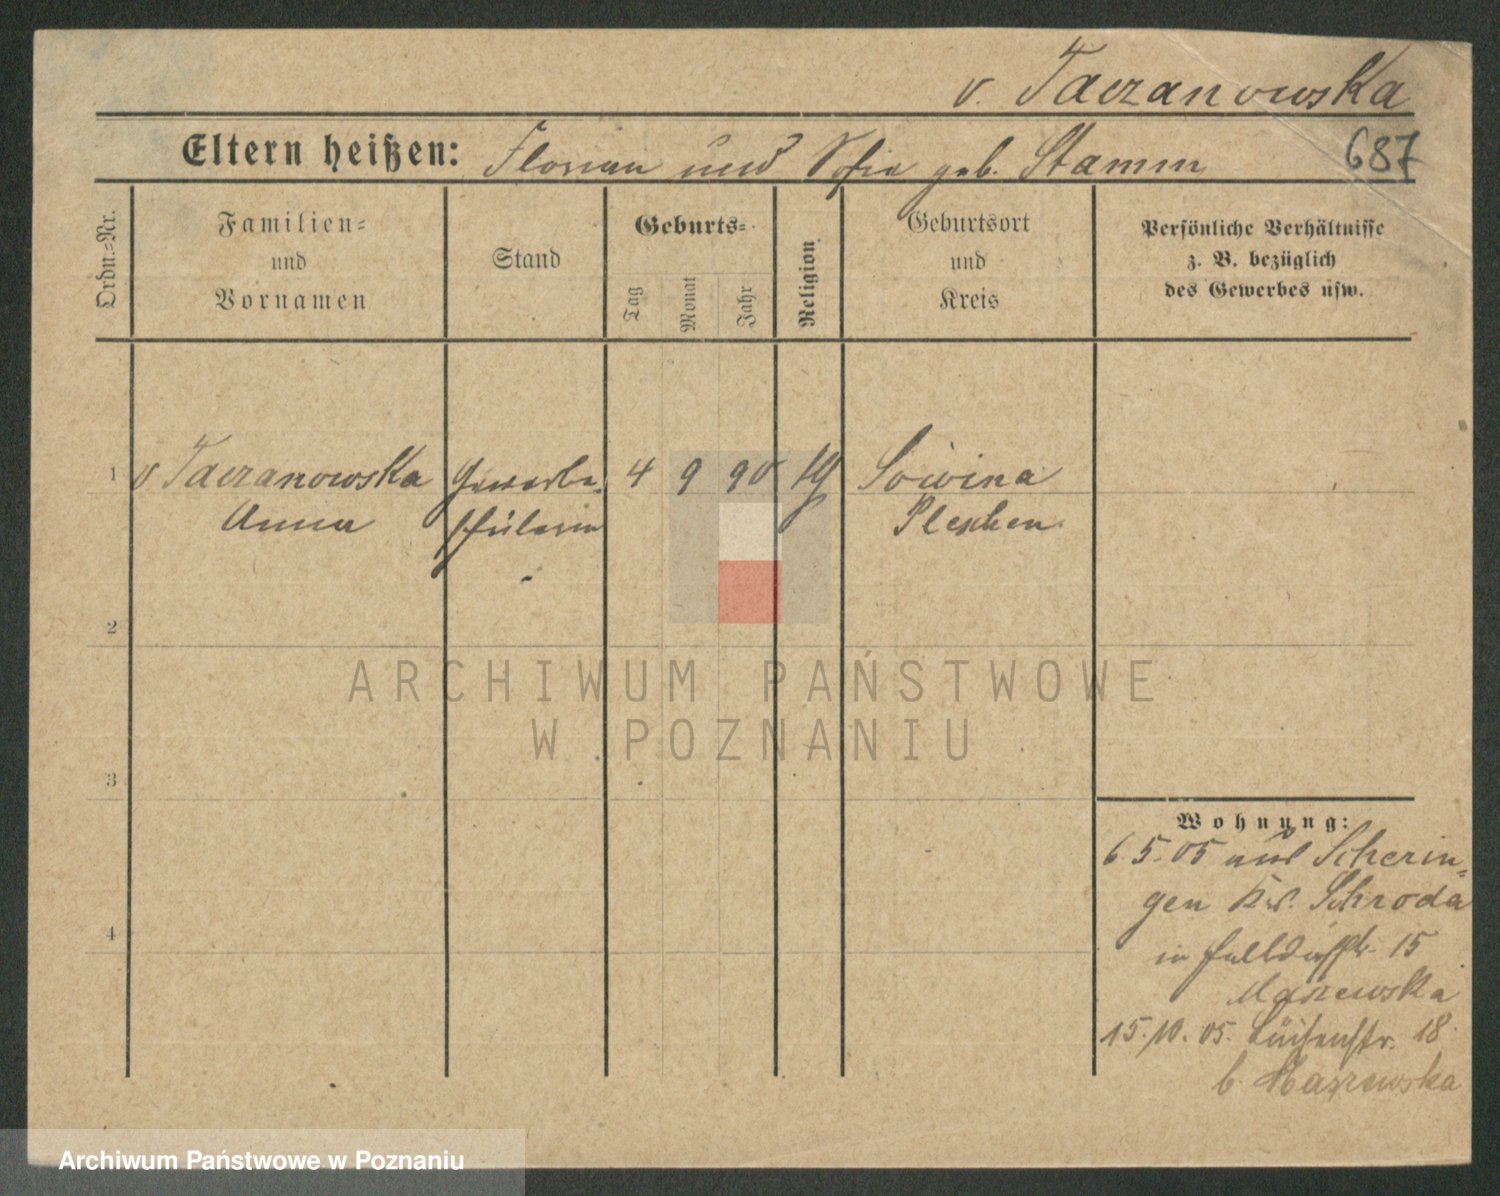 v. Taczanowska
687
Eltern heißen: Florian und Sofie geb. Stamm
Ordn.=Nr.
Familien=
und
Vornamen
Stand
Geburts=
Tag
Monat
Jahr
Religion
Geburtsort
und
Kreis
Persönliche Verhältnisse
z. B. bezüglich
des Gewerbes usw.
1 v Taczanowska Gewerbe= 4 9 90 Sowina
Anna schülerin Pleschen
2
3
4
ARCHIWUM PAŃSTWOWE
W POZNANIU
Wohnung:
6.5.05 aus Scherin=
gen Kr. Schroda
in 15
Maszewska
15.10.05. Luisenstr. 18
b. Maszewska
Archiwum Państwowe w Poznaniu